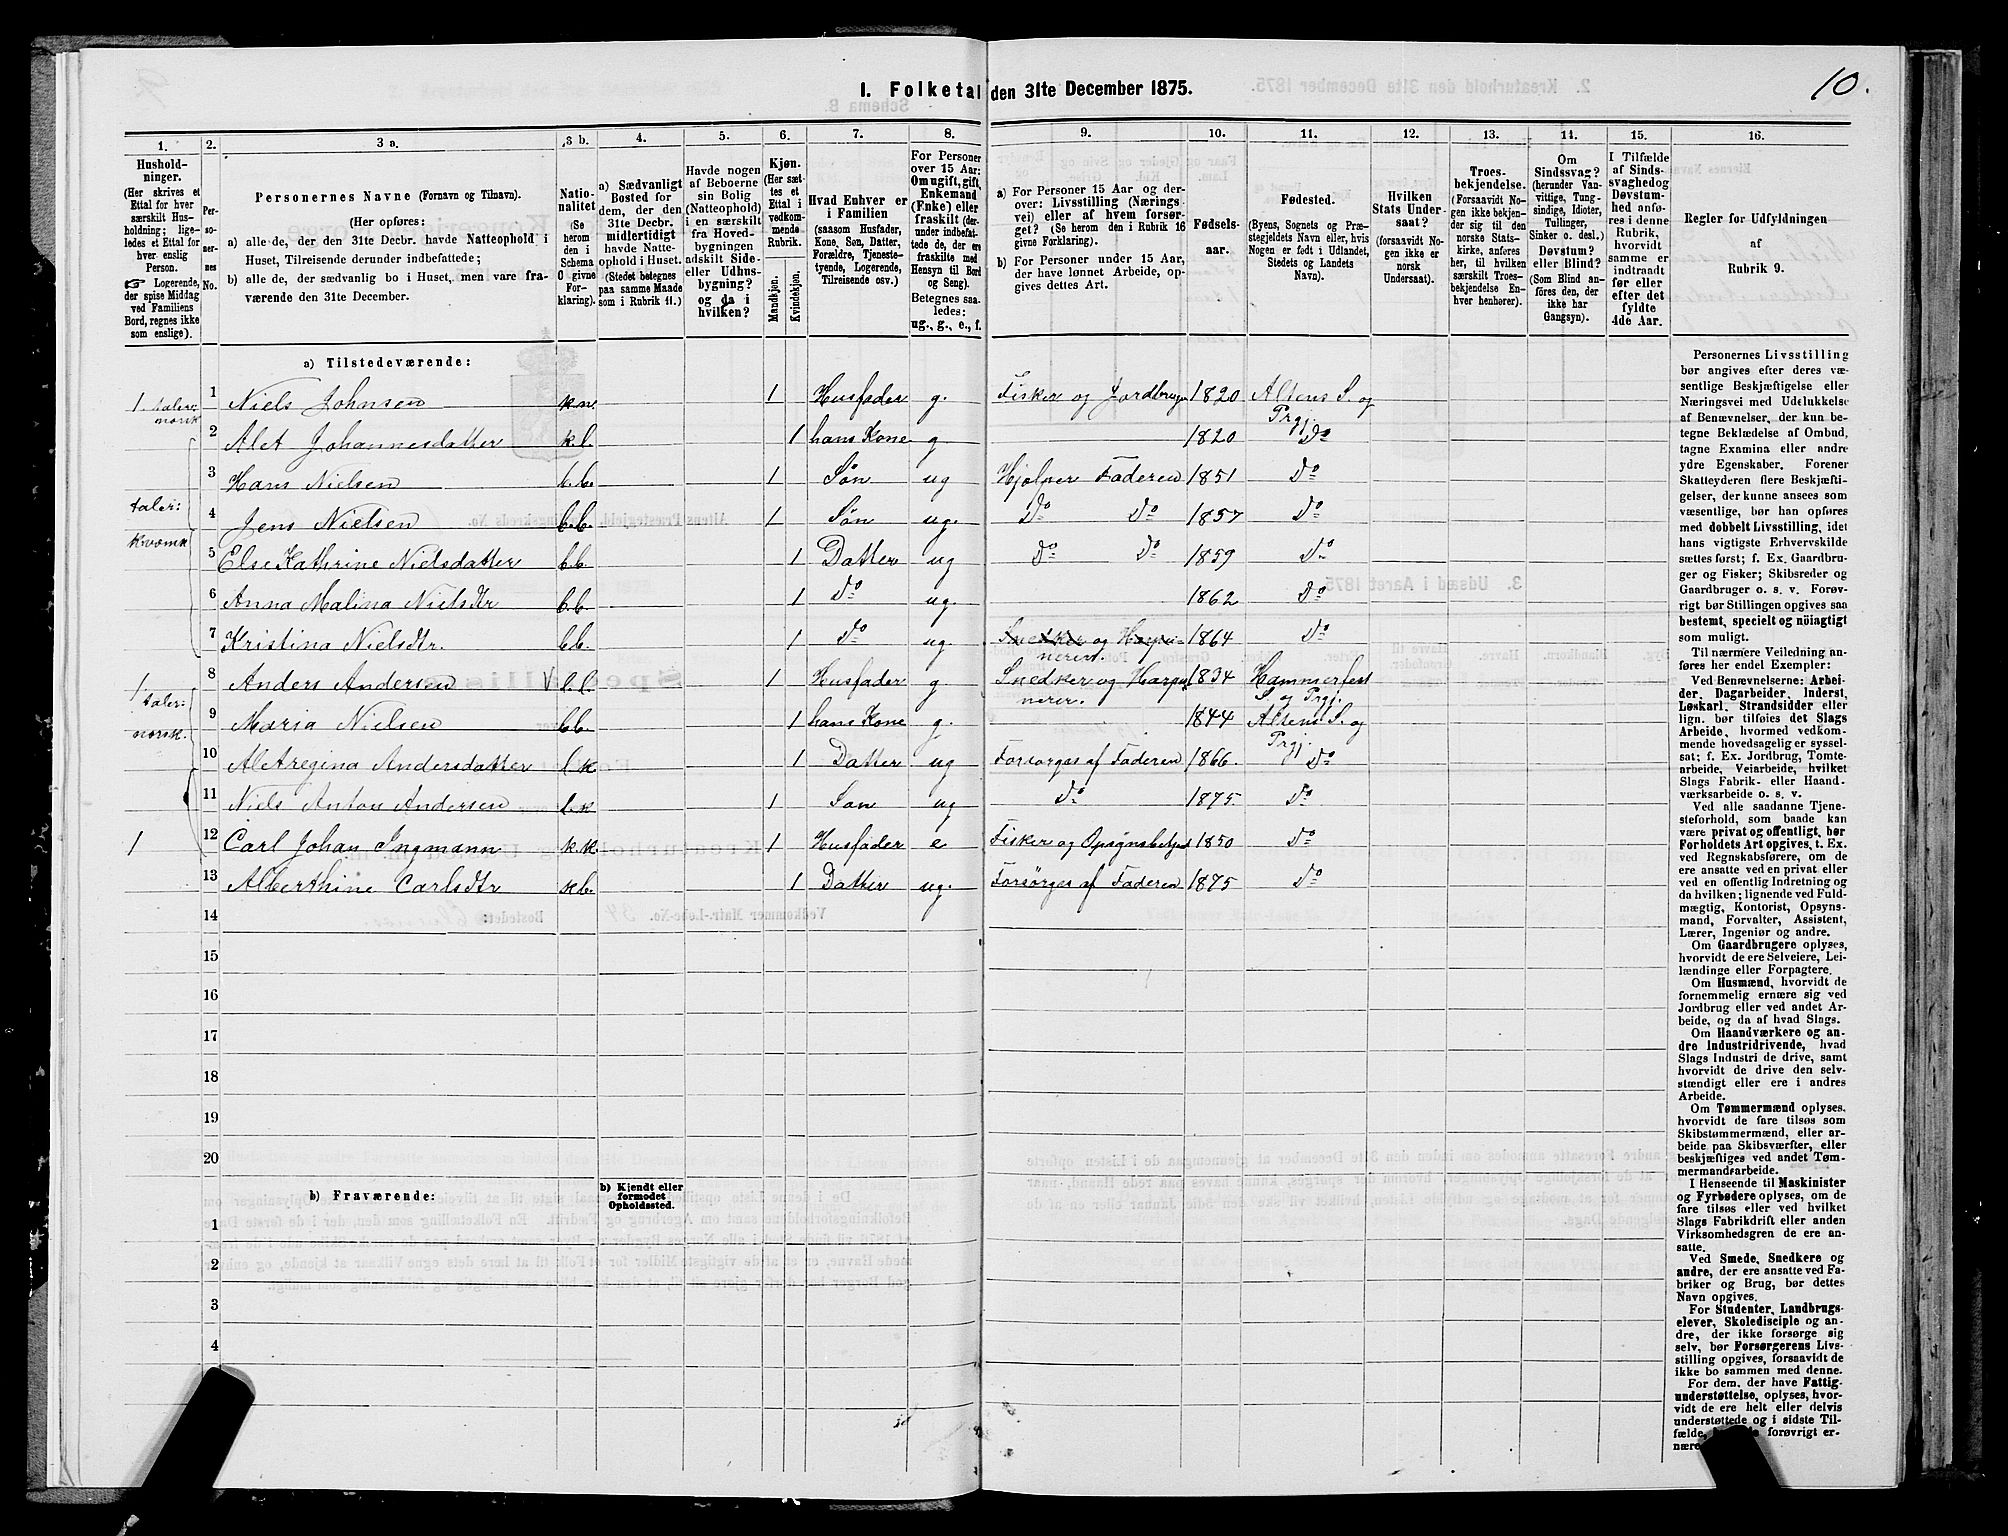 10.
1. Folketal den 31te December 1875.
1. 2. 3 a. 3 b. 4. 5. 6. 7. 8. 9. 10. 11. 12. 13. 14. 15. 16.
Husholdninger. (Her skrives et Ettal for hver særskilt Husholdning; ligeledes et Ettal for hver enslig Person. ☞ Logerende, der spise Middag ved Familiens Bord, regnes ikke som enslige).
Personernes No.
Personernes Navne (Fornavn og Tilnavn).
(Her opføres:
a) alle de, der den 31te Decbr. havde Natteophold i Huset, Tilreisende derunder indbefattede;
b) alle de, der sædvanlig bo i Huset, men vare fraværende den 31te December.
Nationalitet (Se herom den i Schema O givne Forklaring).
a) Sædvanligt Bosted for dem, der den 31te Decbr. midlertidigt havde Natteophold i Huset. (Stedet betegnes paa samme Maade som i Rubrik 11.)
Havde nogen af Beboerne sin Bolig (Natteophold) i en særskilt fra Hovedbygningen adskilt Side- eller Udhusbygning? og da i hvilken?
Kjøn. (Her sættes et Ettal i vedkommende Rubrik.
Mandkjøn. Kvindekjøn.
Hvad Enhver er i Familien (saasom Husfader, Kone, Søn, Datter, Forældre, Tjenestetyende, Logerende, Tilreisende osv.)
For Personer over 15 Aar: Om ugift, gift, Enkemand (Enke) eller fraskilt (derunder indbefattede de, der ere fraskilte med Hensyn til Bord og Seng). Betegnes saaledes: ug., g., e., f.
a) For Personer 15 Aar og derover: Livsstilling (Næringsvei) eller af hvem forsørget? (Se herom den i Rubrik 16 givne Forklaring).
b) For Personer under 15 Aar, der have lønnet Arbeide, opgives dettes Art.
Fødselsaar.
Fødested. (Byens, Sognets og Præstegjeldets Navn eller, hvis Nogen er født i Udlandet, Stedets og Landets Navn).
Hvilken Stats Undersaat? (forsaavidt Nogen ikke er norsk Undersaat).
Troesbekjendelse. (Forsaavidt Nogen ikke bekjender sig til den norske Statskirke, anføres her, til hvilken særskilt Troesbekjendelse Enhver henhører).
Om Sindssvag? (herunder Vanvittige, Tungsindige, Idioter, Tullinger, Sinker o. desl.) Døvstum? eller Blind? (Som Blind anføres den, der ikke har Gangsyn).
I Tilfælde af Sindssvaghed og Døvstumhed anføres i denne Rubrik, hvorvidt samme er indtraadt før eller efter det fyldte 4de Aar.
Regler for Udfyldningen af Rubrik 9.
a) Tilstedeværende:
1 taler: norsk 1 Niels Johnsen k.n. 1 Husfader g. Fisker og Jordbruger 1820 Altens S. og Prgj.
2 Alet Johannesdatter k.l. 1 hans Kone g 1820 Do
3 Hans Nielsen b.b. 1 Søn ug Hjælper Faderen 1851 Do
taler: Kvænsk
4 Jens Nielsen b.b. 1 Søn ug. Do Do 1857 Do
5 Else Kathrine Nielsdatter b.b. 1 Datter ug Do Do 1859 Do
6 Anna Malina Nielsdtr b.b. 1 Do ug. 1862 Do
7 Kristina Nielsdtr. b.b. 1 Do ug. 1864 Do
1 taler: norsk. 8 Anders Andersen l.l. 1 Husfader g Snedker og Harpunerer. 1834 Hammerfest S og Prgj.
9 Maria Nielsen b.b. 1 hans Kone g. 1844 Altens S. og Prgj.
10 Aletregina Andersdatter l.k 1 Datter ug Forsørges af Faderen 1866. Do
11 Niels Anton Andersen l.k 1 Søn ug Do 1875. Do
1 12 Carl Johan Ingmann k.k 1 Husfader e Fisker og 1850 Do
13 Alberthine Carlsdtr k.b. 1 Datter ug. Forsørges af Faderen 1875 Do
14
15
16
17
18
19
20
b) Fraværende: b) Kjendt eller formodet Opholdssted.
1
2
3
4
Personernes Livsstilling
bør angives efter deres væsentlige
Beskjæftigelse eller
Næringsvei med Udelukkelse
af Benævnelser, der kun betegne
Beklædelse af Ombud,
tagne Examina eller andre
ydre Egenskaber. Forener
Skatteyderen flere Beskjæftigelser,
der kunne ansees som
væsentlige, bør han opføres
med dobbelt Livsstilling, idet
hans vigtigste Erhvervskilde
sættes først; f. Ex. Gaardbruger
og Fisker; Skibsreder og
Gaardbruger o. s. v. Forøvrigt
bør Stillingen opgives saa
bestemt, specielt og nøiagtigt
som muligt.
Til nærmere Veiledning anføres
her endel Exempler:
Ved Benævnelserne: Arbeider,
Dagarbeider, Inderst,
Løskarl, Strandsidder eller
lign. bør tilføies det Slags
Arbeide, hvormed vedkommende
hovedsagelig er sysselsat;
f. Ex. Jordbrug, Tomtearbeide,
Veiarbeide, hvilket
Slags Fabrik- eller Haandværksarbeide
o. s. v.
Ved alle saadanne Tjenesteforhold,
som baade kan
være privat og offentligt, bør
Forholdets Art opgives, t. Ex.
ved Regnskabsførere, om de
ere ansatte ved en privat eller
ved en offentlig Indretning og
da hvilken; lignende ved Fuldmægtig,
Kontorist, Opsynsmand,
Forvalter, Assistent,
Lærer, Ingeniør og andre.
Om Gaardbrugere oplyses,
hvorvidt de ere Selveiere, Leilændinge
eller Forpagtere.
Om Husmænd, hvorvidt de
fornemmelig ernære sig ved
Jordbrug eller ved andet Arbeide,
og da af hvad Slags.
Om Haandværkere og andre
Industridrivende, hvad
Slags Industri de drive, samt
hvorvidt de drive den selvstændigt
eller ere i andres
Arbeide.
Om Tømmermænd oplyses,
hvorvidt de fare tilsøs som
Skibstømmermænd, eller arbeide
paa Skibsværfter, eller
beskjæftiges ved andet Tømmermandsarbeide.
I Henseende til Maskinister
og Fyrbødere oplyses, om de
fare tilsøs eller ved hvilket
Slags Fabrikdrift eller anden
Virksomhedsgren de ere ansatte.
Ved Smede, Snedkere og
andre, der ere ansatte ved Fabriker
og Brug, bør dettes
Navn opgives.
For Studenter, Landbrugselever,
Skoledisciple og andre,
der ikke forsørge sig
selv, bør Forsørgerens Livsstilling
opgives, forsaavidt de
ikke bo sammen med denne.
For dem, der have Fattigunderstøttelse,
oplyses, hvorvidt
de ere helt eller delvis
understøttede og i sidste Tilfælde,
forøvrigt ernære